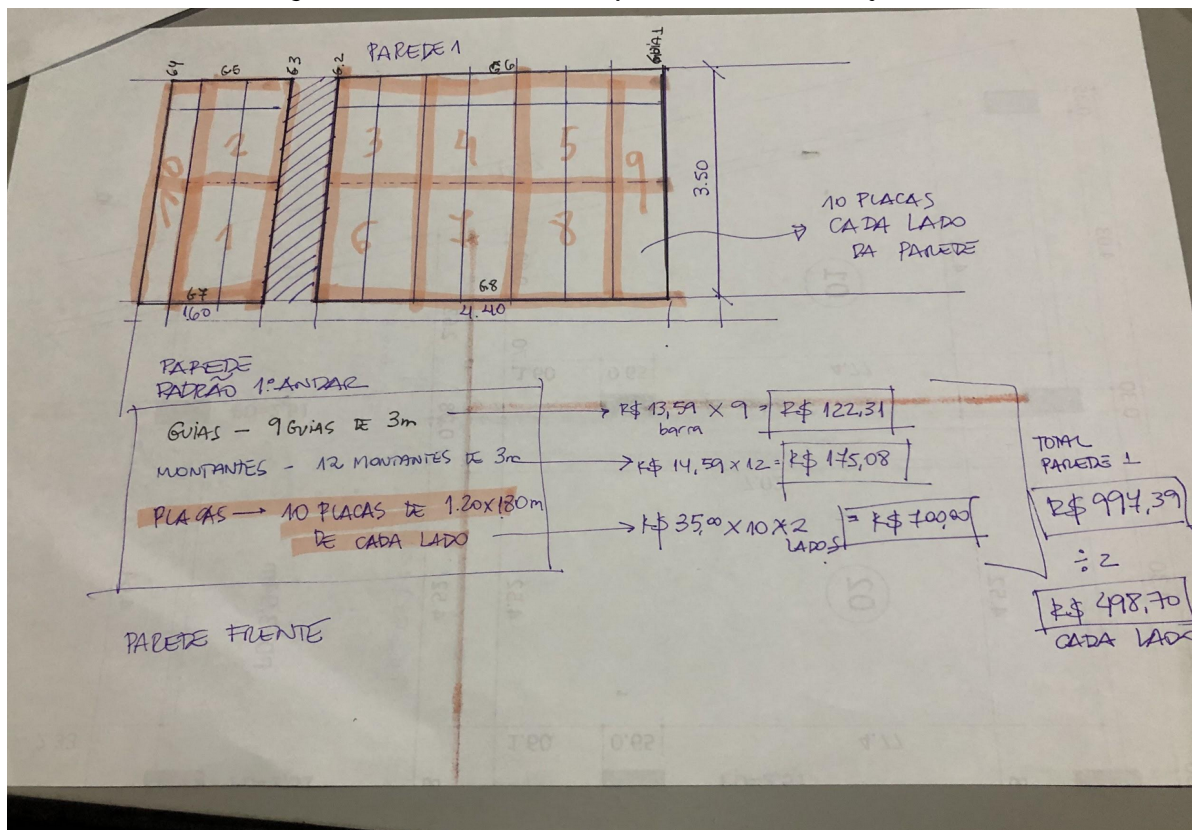 PAREDE 1
G4
G5
G3
G.2
G6
GUIA1
2
3
4
5
10
9
1
6
7
8
3.50
10 PLACAS
CADA LADO
DA PAREDE
G7
G8
1.60
4.40
PAREDE
PADRÃO 1º ANDAR
GUIAS - 9 GUIAS DE 3m
R$ 13,59 X 9 = R$ 122,31
barra
MONTANTES - 12 MONTANTES DE 3m
R$ 14,59 X 12 = R$ 175,08
PLACAS → 10 PLACAS DE 1.20X1.80m
DE CADA LADO
R$ 35,00 X 10 X 2 = R$ 700,00
LADOS
TOTAL
PAREDE 1
R$ 997,39
÷ 2
R$ 498,70
CADA LADO
PAREDE FRENTE